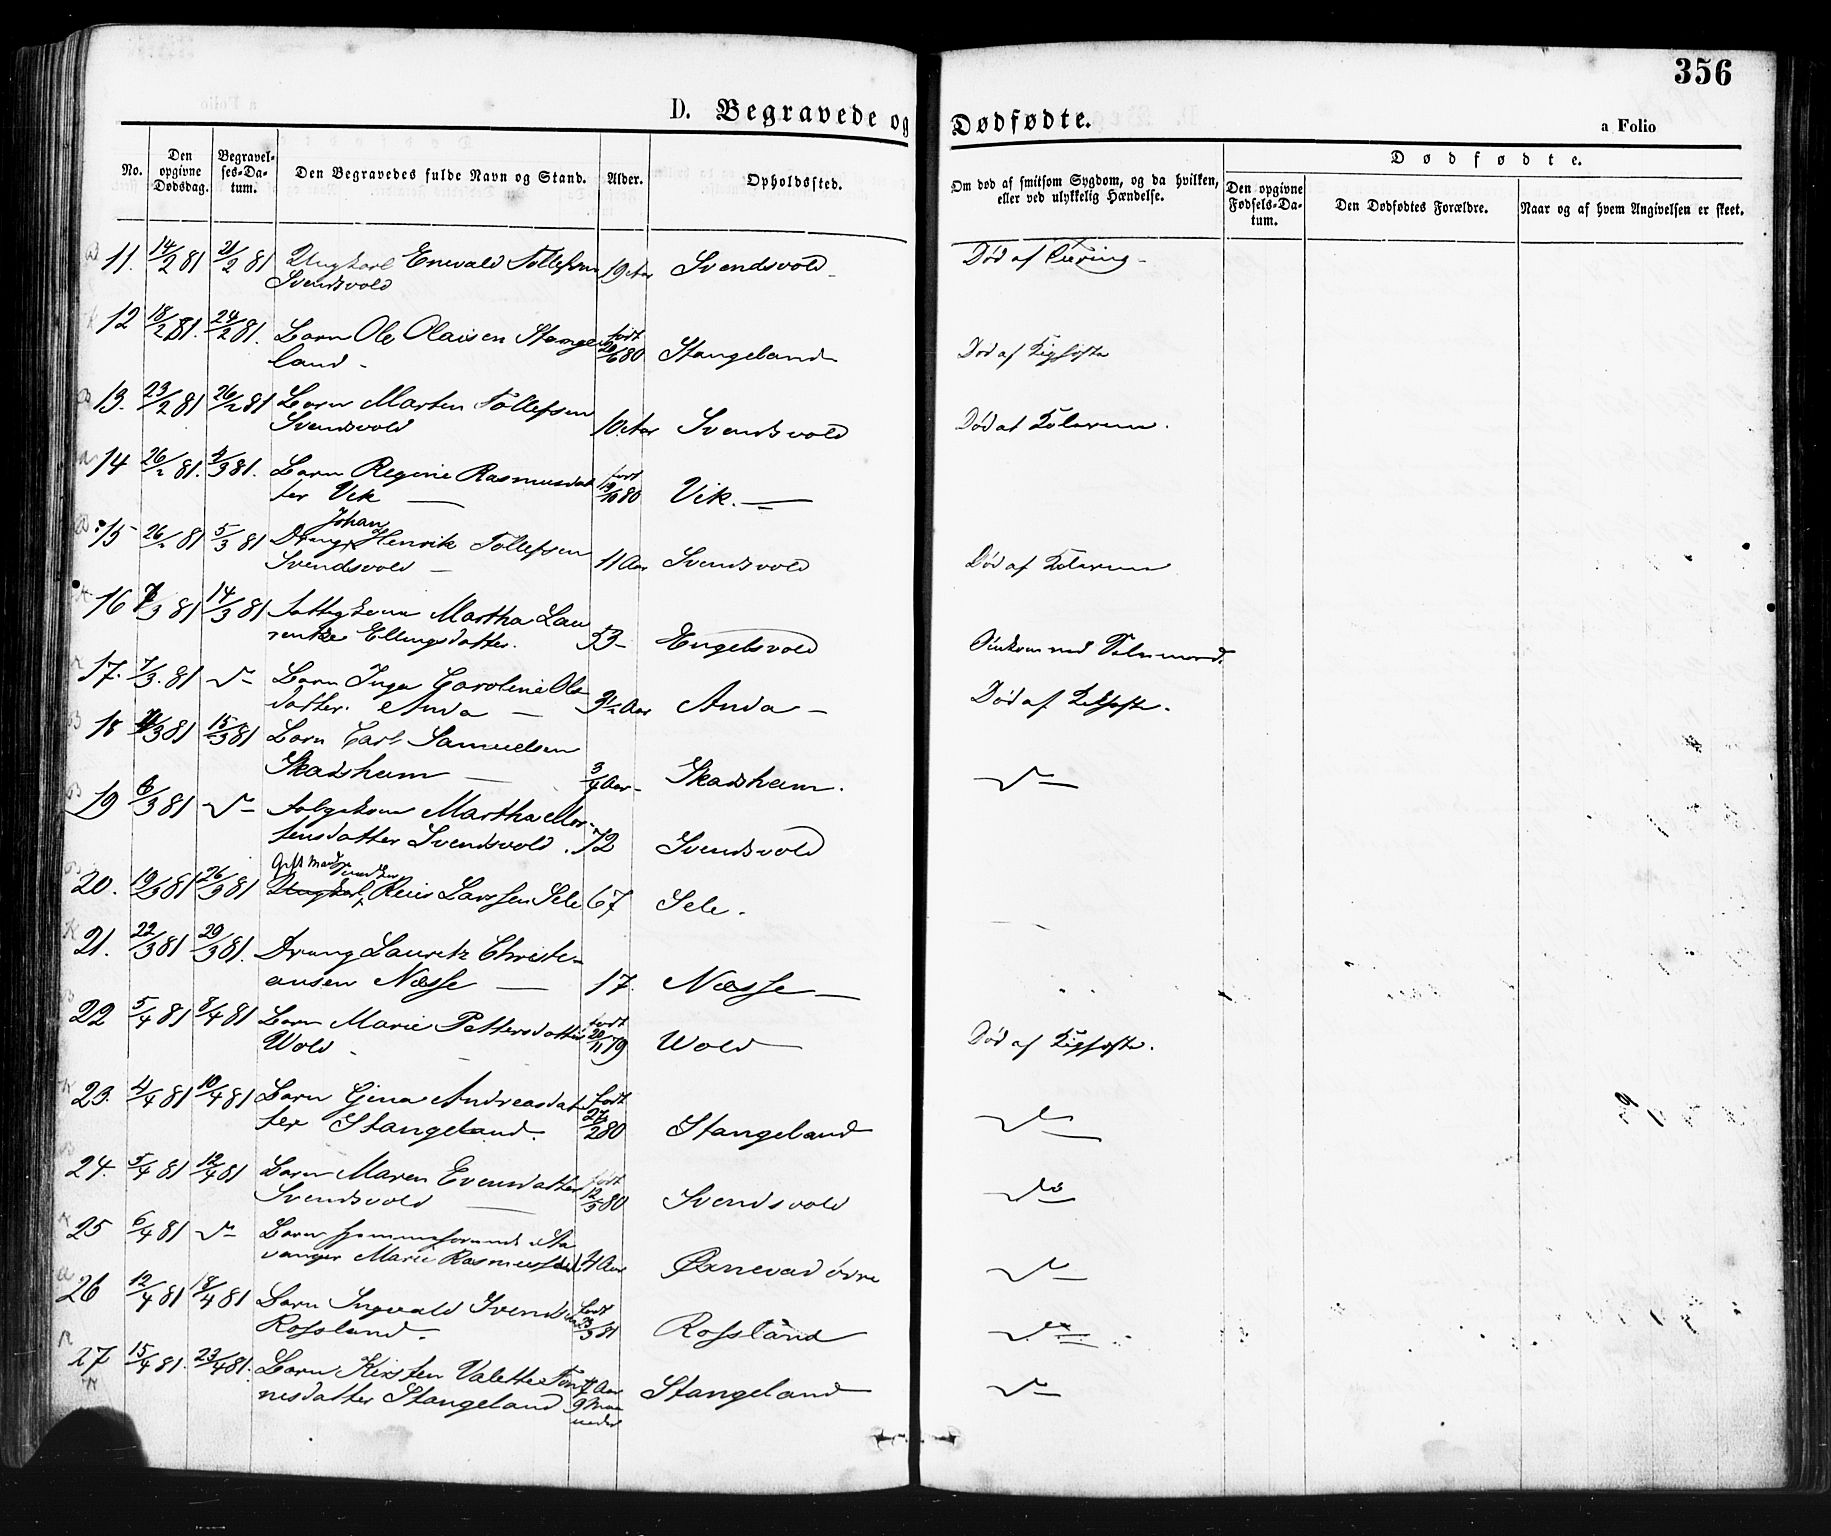 356
D. Begravede og Dødfødte.
a Folio
No.
Den opgivne Dødsdag.
Begravelses-Datum.
Den Begravedes fulde Navn og Stand.
Alder.
Opholdssted.
Om død af smitsom Sygdom, og da hvilken, eller ved ulykkelig Hændelse.
Dødfødte.
Den opgivne Fødsels-Datum.
Den Dødfødtes Forældre.
Naar og af hvem Angivelsen er skeet.
11. 14/2 81 21/2 81 Ungkarl Enevald Tollefsen 19 Aar Svendsvold - Død af
Svendsvold
12 18/2 81. 24/2 81. Barn Ole Olaisen Stange født 6 80 Stangeland Død af Kighoste
land -
13. 23/2 81 26/2 81 Barn Marten Tollefsen 10 Aar Svendsvold Død af
Svendsvold
14 26/2 81. 81. Barn Regine Rasmusdat født 19/10 80 Vik. -
ter Vik -
15 26/2 81 5/3 81 Dreng Johan Henrik Tollefsen 11 Aar Svendsvold Død af
Svendsvold -
16 /3 81 14/3 81 Martha Lau 53- Engelsvold Omkom ved Selvmord.
rentze Ellingsdatter.
17. 7/3. 81 Barn Inga Caroline Ols 3 1/2 Aar Anda - Død af Kighoste.
datter. Anda -
18 /3 81 15/3 81 Barn Carl Samuelsen
Skadsheim - 3/4 Aar - Skadsheim.
19 6/3 81 Martha Mor
tensdatter Svendsvold. 72 Svendsvold
Gift Mand
20. 19/3 81 26/3 81 Ungkarl Reier Larssen Sele 67 Sele.
21. 22/3 81 29/3 81. Dreng Lauritz Christi-
ansen Næsse - 17. Næsse -
22 5/4 81 8/4 81 Barn Marie Pettersdatter født 20/11 79 Wold Død af Kighoste.
Wold -
23. 4/4 81 10/4 81 Barn Gina Andreasdat født 27/2 80 Stangeland
ter Stangeland.
24. 5/4 81 12/4 81 Barn Maren Evensdatter født 12/5 80 Svendsvold
Svendsvold -
25 6/4 81 Barn hjemmehørende Sta
vanger Marie Rasmusd 4 Aar Ørnevad øvre
26 12/4 81 18/4 81 Barn Ingvald Svends født 23/3 81 Rossland
Rossland.
27 15/4 81. 23/4 81. Barn Kirsten Valette Tøn 4 Aar Stangeland
nesdatter Stangeland 9 Maaneder